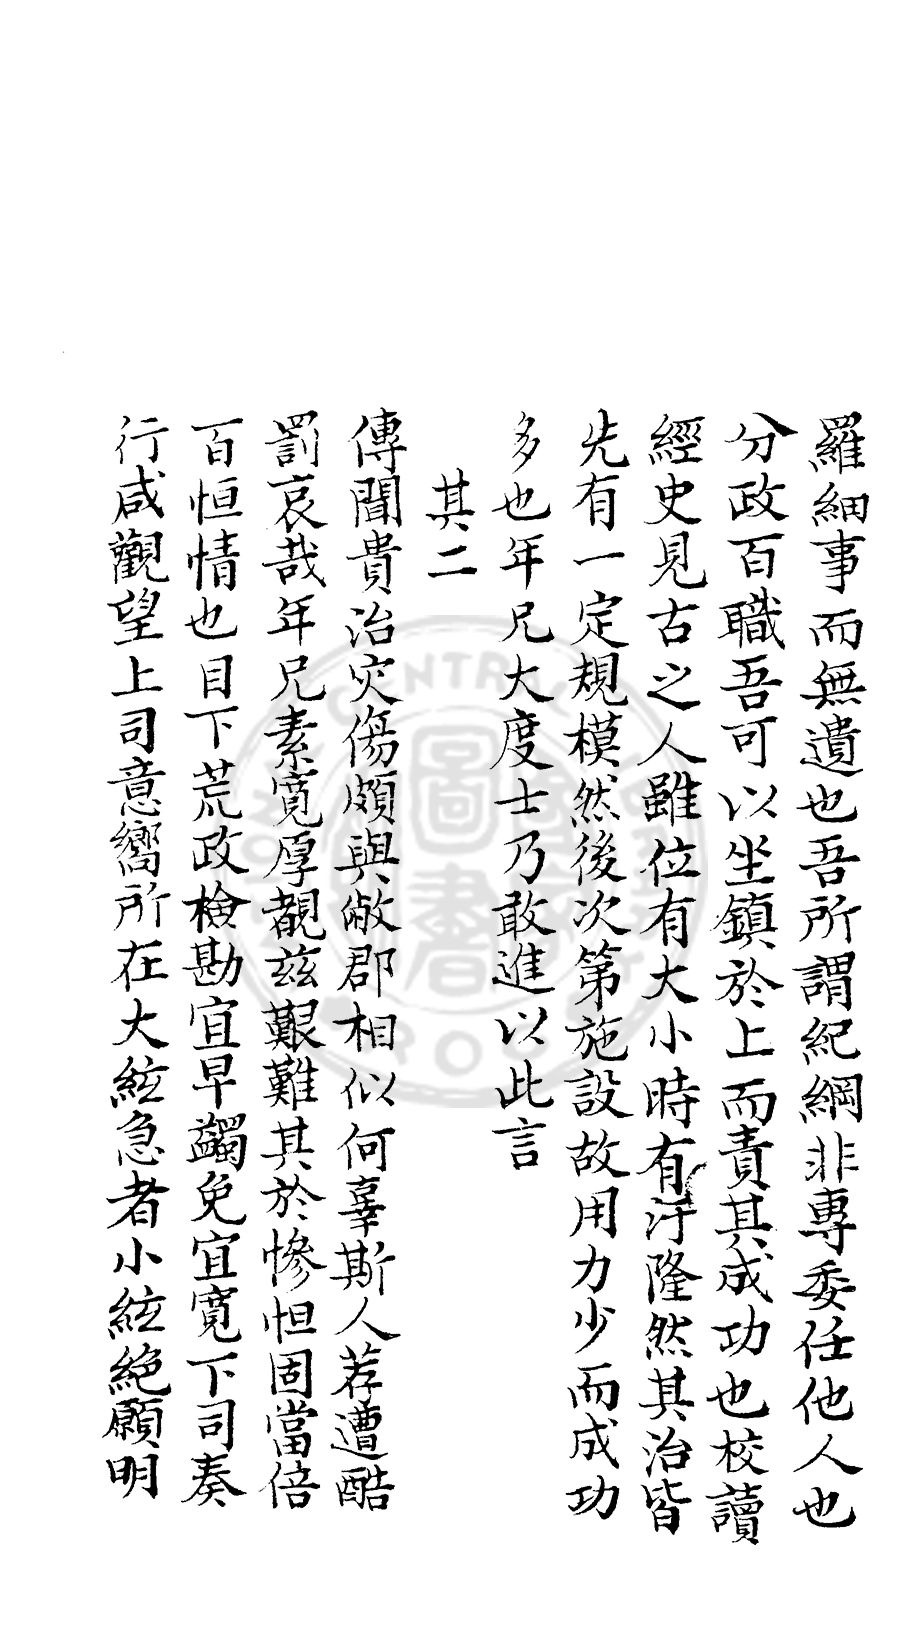 羅細事而無遺也吾所謂紀綱非專委任他人也
分政百職吾可以坐鎮於上而責其成功也校讀
經史見古之人雖位有大小時有汙隆然其治皆
先有一定規模然後次第施設故用力少而成功
多也年兄大度士乃敢進以此言
其二
傳聞貴治灾傷頗與敝郡相似何辜斯人荐遭酷
罰哀哉年兄素寬厚覩兹艱難其於慘怛固當倍
百恒情也目下荒政檢勘宜早蠲免宜寬下司奏
行咸觀望上司意嚮所在大絃急者小絃絶願明